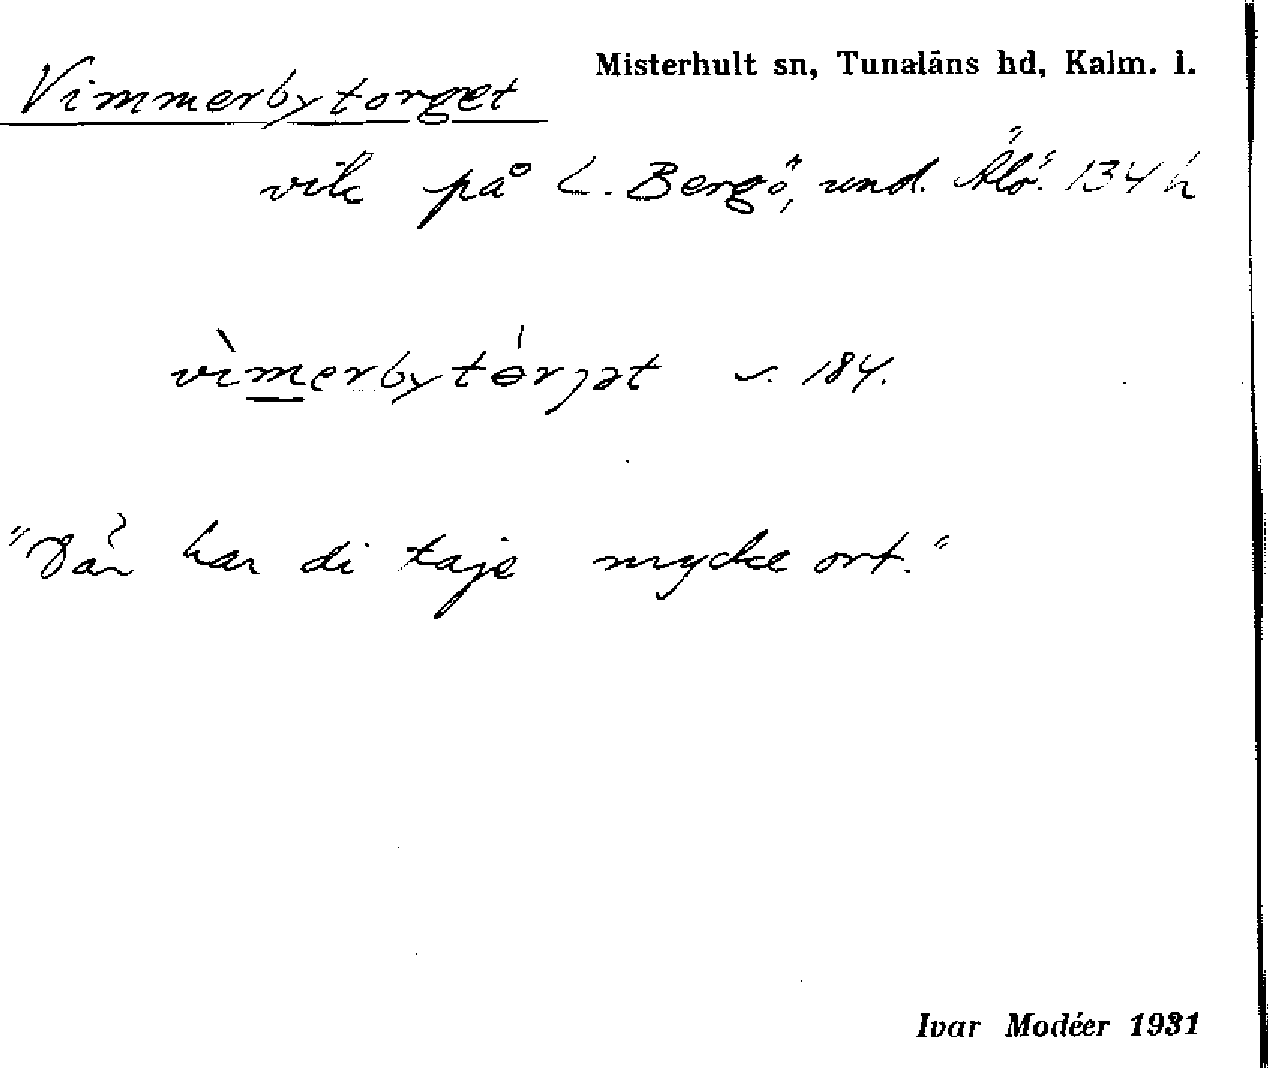 Misterhult sn, Tunaläns hd, Kalm. l.
Vimmerbytorget
vik på L. Bergö, und. Älö. 134 h
vìmerbytórjət v. 184.
"Där har di taje mycke ort."
Ivar Modéer 1931